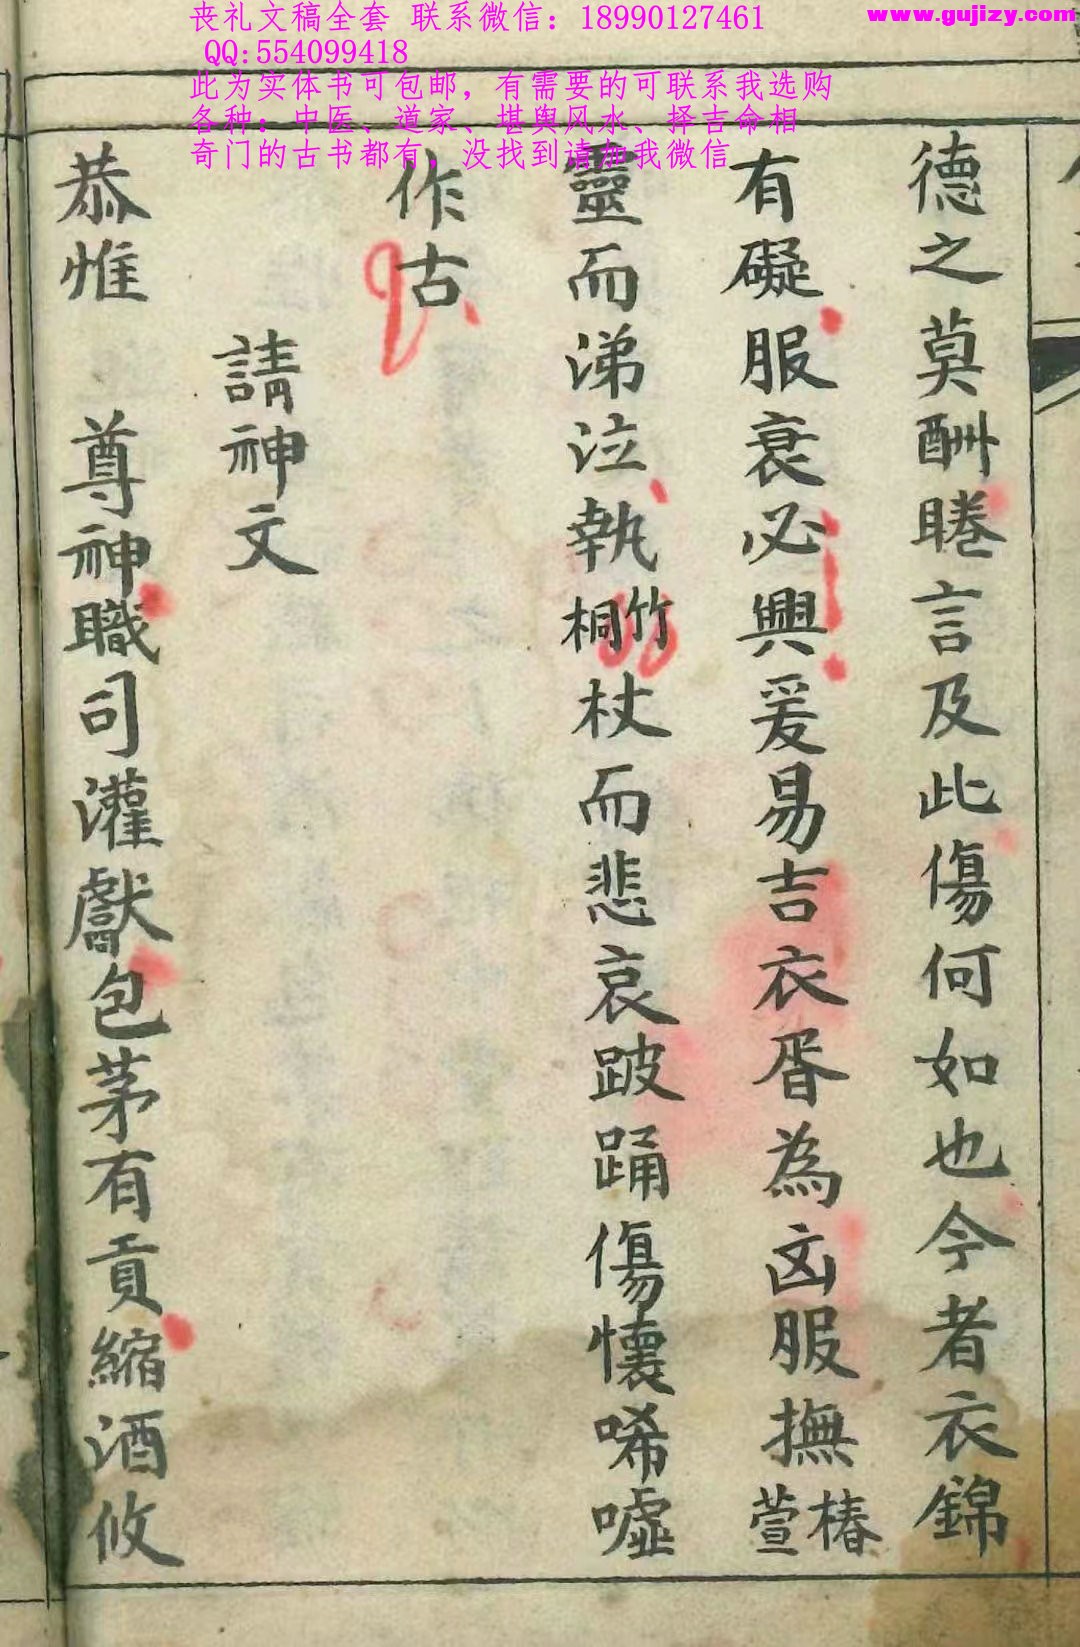 丧礼文稿全套 联系微信：18990127461
QQ:554099418
此为实体书可包邮，有需要的可联系我选购
各种：中医、道家、堪舆风水、择吉命相
奇门的古书都有，没找到请加我微信
www.gujizy.com
德之莫酬睠言及此傷何如也今者衣錦
有礙服衰必興爰易吉衣胥為凶服撫椿萱
靈而涕泣執竹桐杖而悲哀跛踊傷懷唏噓
作古
請神文
恭惟 尊神職司灌獻包茅有貢縮酒攸